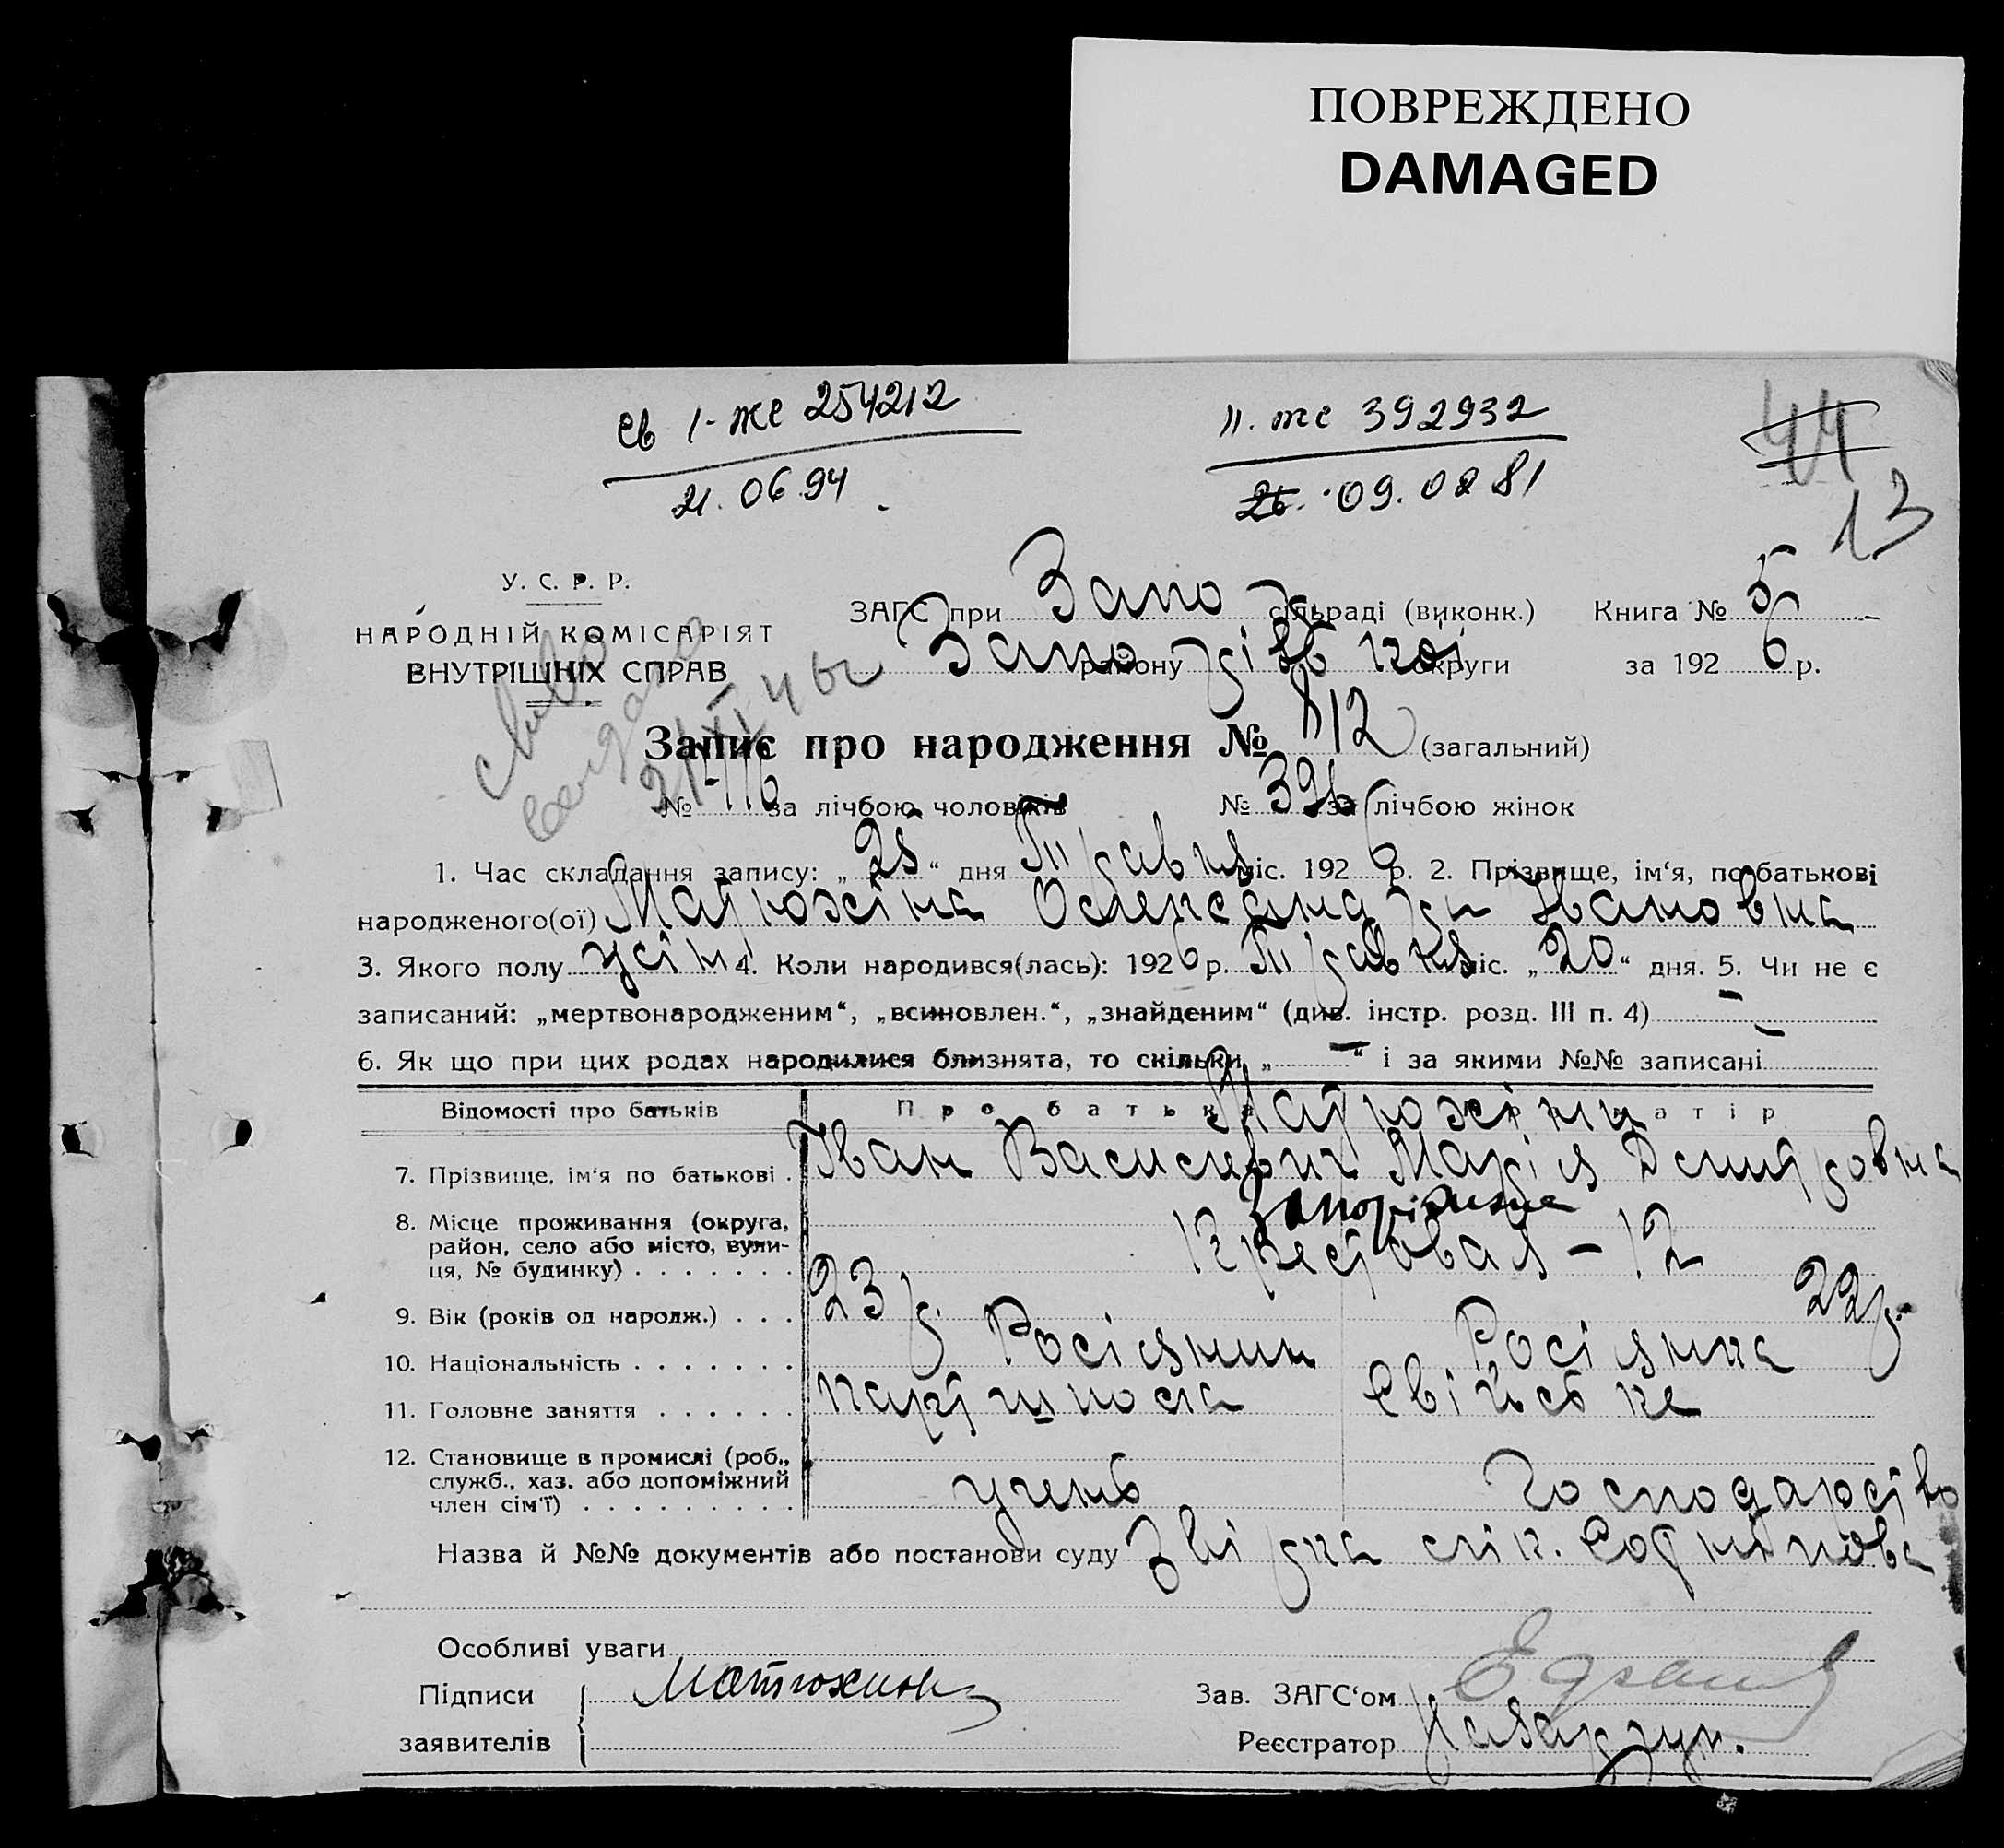 ПОВРЕЖДЕНО
DAMAGED
св I-же 254212
21.06.94
II-же 392932
26. 09.02 81
44
13
У. С. Р. Р.
НАРОДНІЙ КОМІСАРІЯТ
ВНУТРІШНІХ СПРАВ
ЗАГС при Запо сільраді (виконк.) Книга № 5
Запо району різької округи за 1926 р.
Запис про народження № 812 (загальний)
№ 116 за лічбою чоловіків № 396 за лічбою жінок
1. Час складання запису: „25“ дня Травня міс. 1926 р. 2. Прізвище, ім‘я, по батькові
народженого(ої) Матюхіна Олександра Івановна
3. Якого полу жін 4. Коли народився(лась): 1926 р. Травня міс. „20“ дня. 5. Чи не є
записаний: „мертвонародженим“, „всиновлен.“, „знайденим“ (див. інстр. розд. III п. 4) —
6. Як що при цих родах народилися близнята, то скільки „—“ і за якими №№ записані
Відомості про батьків Про батька Про матір
Матюхіни
7. Прізвище, ім‘я по батькові . Іван Васильович Марія Дмитровна
8. Місце проживання (округа, район, село або місто, вули-ця, № будинку) . . . . . . . Запоріжжя
Крестовая – 12
9. Вік (років од народж.) . . . 23 р. 22 р.
10. Національність . . . . . . . Росіянин Росіянка
11. Головне заняття . . . . . . партшкола свійське
12. Становище в промислі (роб., служб., хаз. або допоміжний член сім‘ї) . . . . . . . . . учень господарство
Назва й №№ документів або постанови суду Звірка
Особливі уваги
Підписи Матюхин Зав. ЗАГС‘ом
заявителів Реєстратор